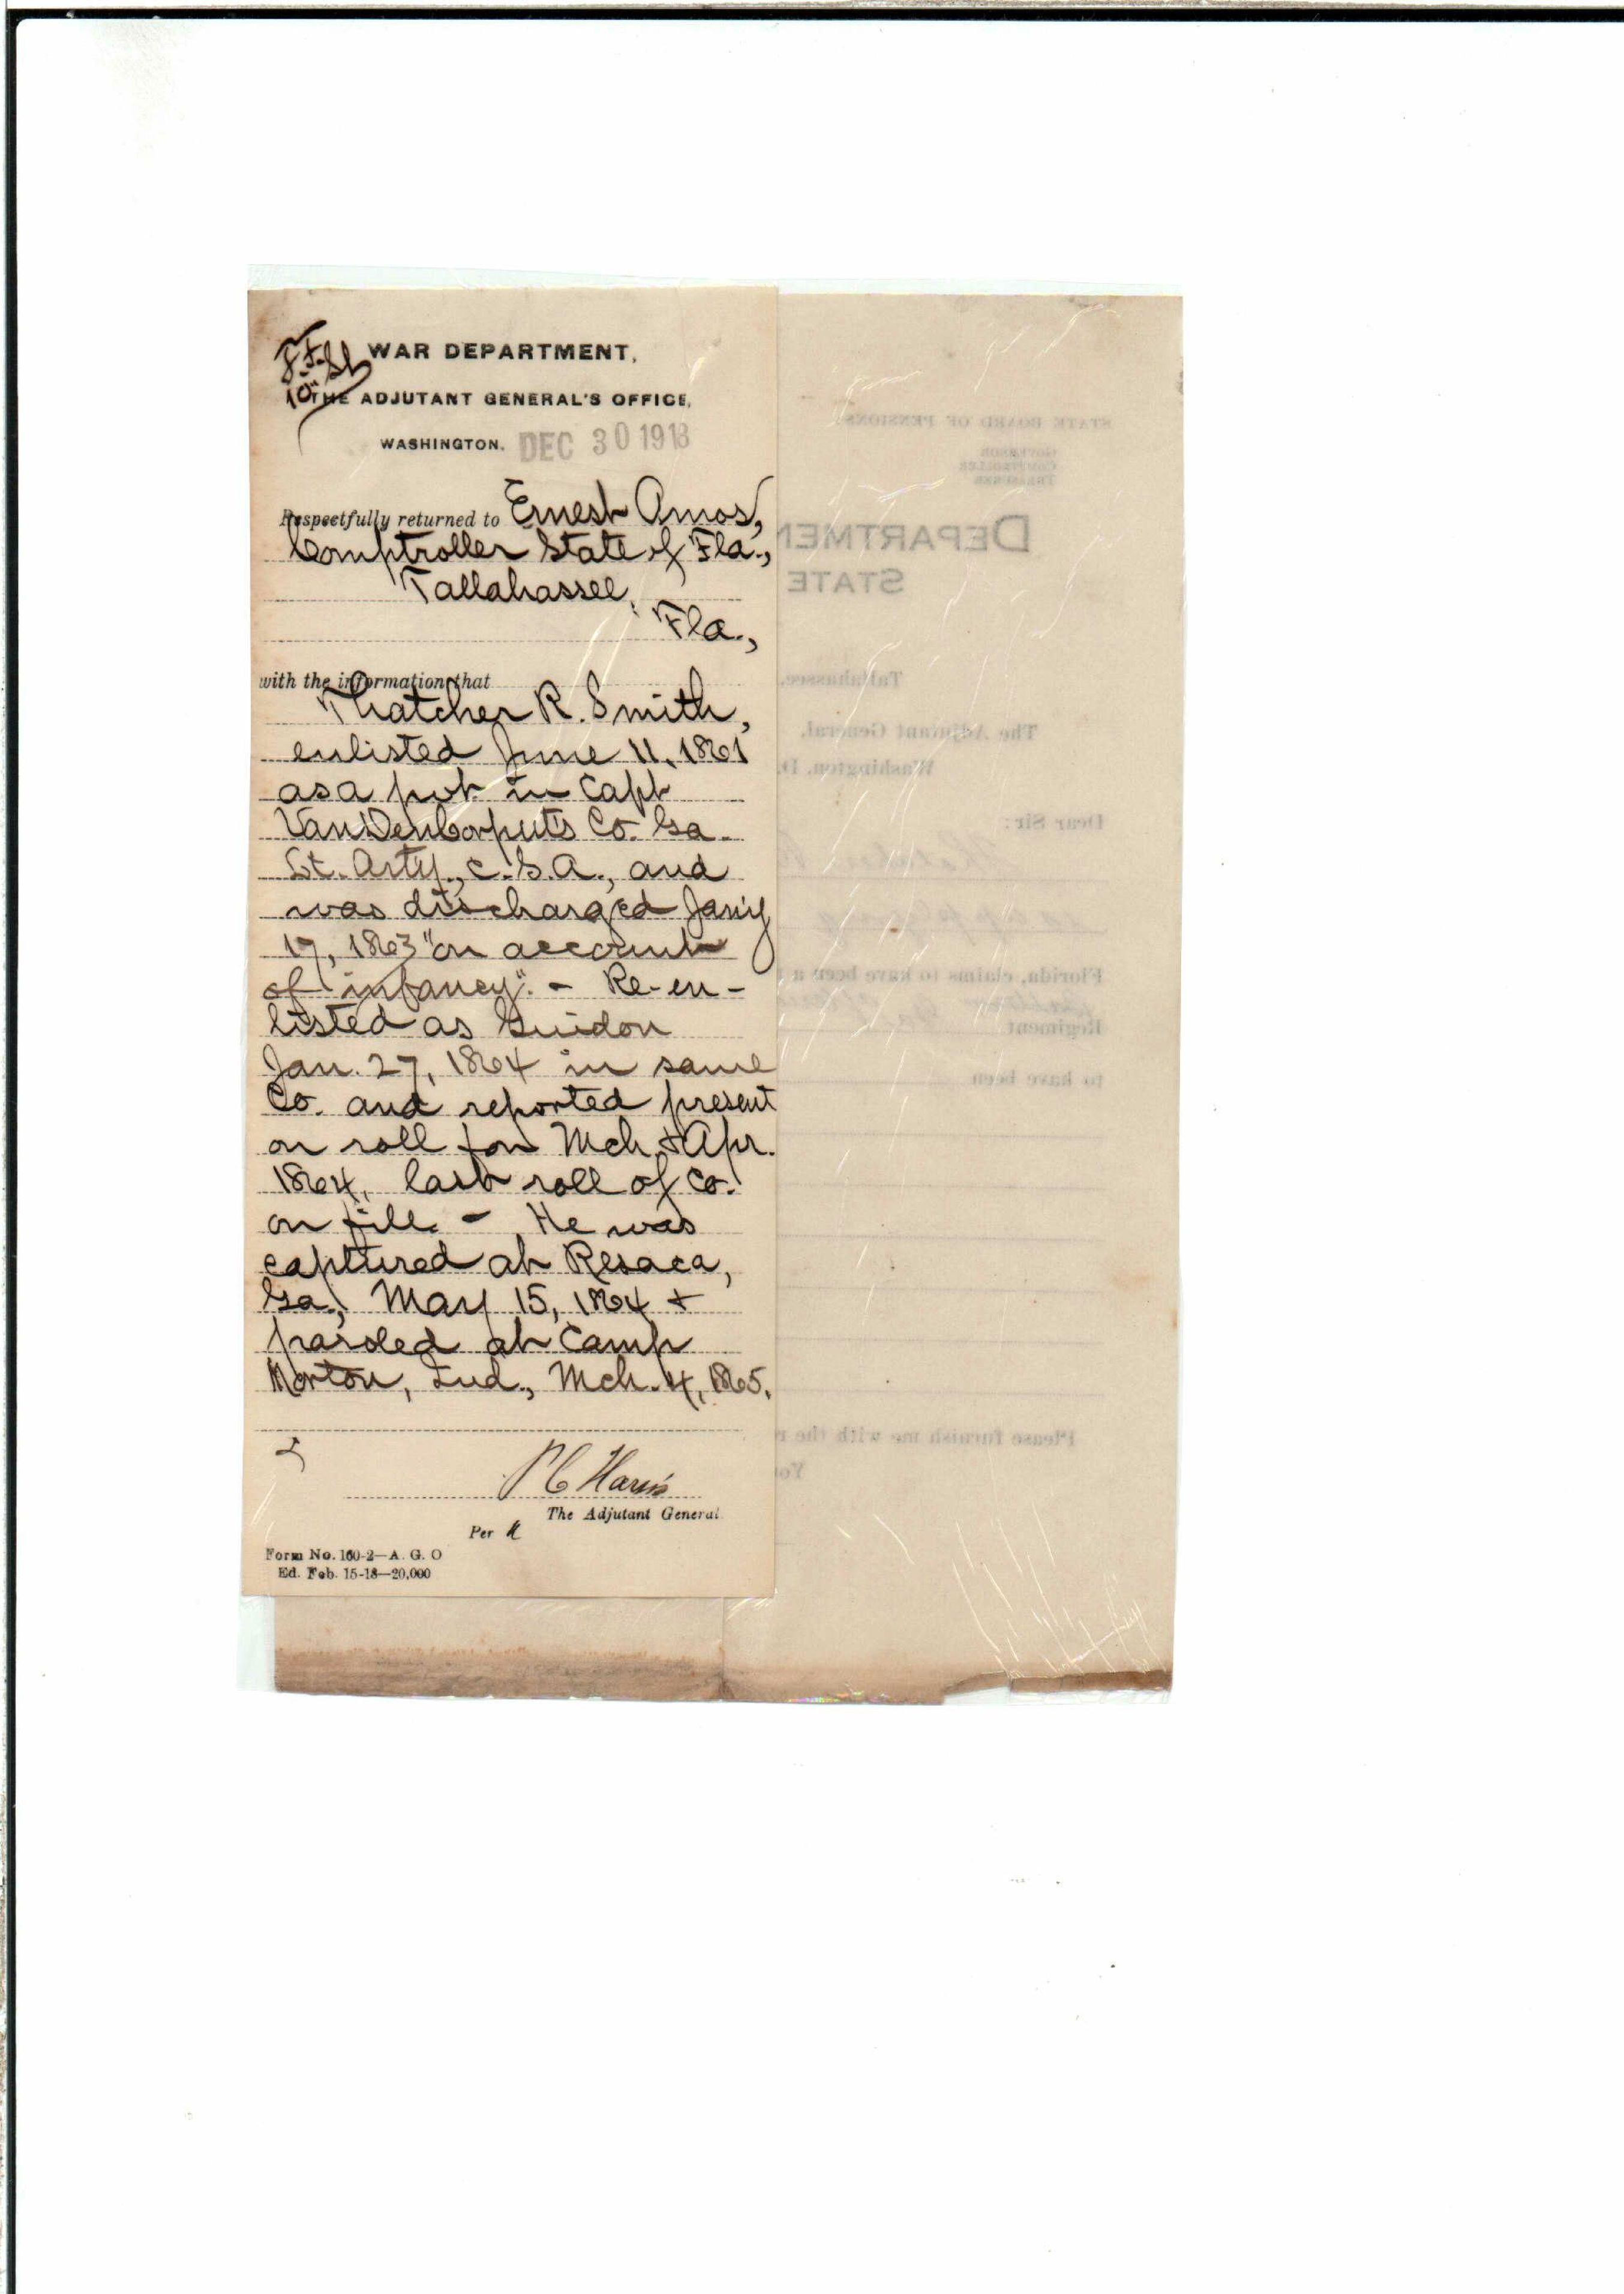 WAR DEPARTMENT,
THE ADJUTANT GENERAL'S OFFICE,
WASHINGTON. DEC 30 1918
Respectfully returned to Ernest Amos,
Comptroller State of Fla.,
Tallahassee,
Fla.,
with the information that
Thatcher R. Smith,
enlisted June 11, 1861
as a pvt. in Capt
VanDenCorput's Co. Ga.
Lt. Arty., C.S.A., and
was discharged Jan'y
17, 1863 "on account
of infancy". - Re-en-
listed as Guidon
Jan. 27, 1864 in same
Co. and reported present
on roll for Mch. & Apr.
1864, last roll of Co.
on file - He was
captured at Resaca,
Ga., May 15, 1864 &
paroled at Camp
Morton, Ind., Mch. 4, 1865.
P C Harris
The Adjutant General
Per
Form No. 160-2—A. G. O
Ed. Feb. 15-18—20,000
STATE BOARD OF PENSIONS
GOVERNOR
COMPTROLLER
TREASURER
DEPARTMEN
STATE
Tallahassee,
The Adjutant General,
Washington, D.
Dear Sir:
Florida, claims to have been a
Regiment
to have been
Please furnish me with the r
You